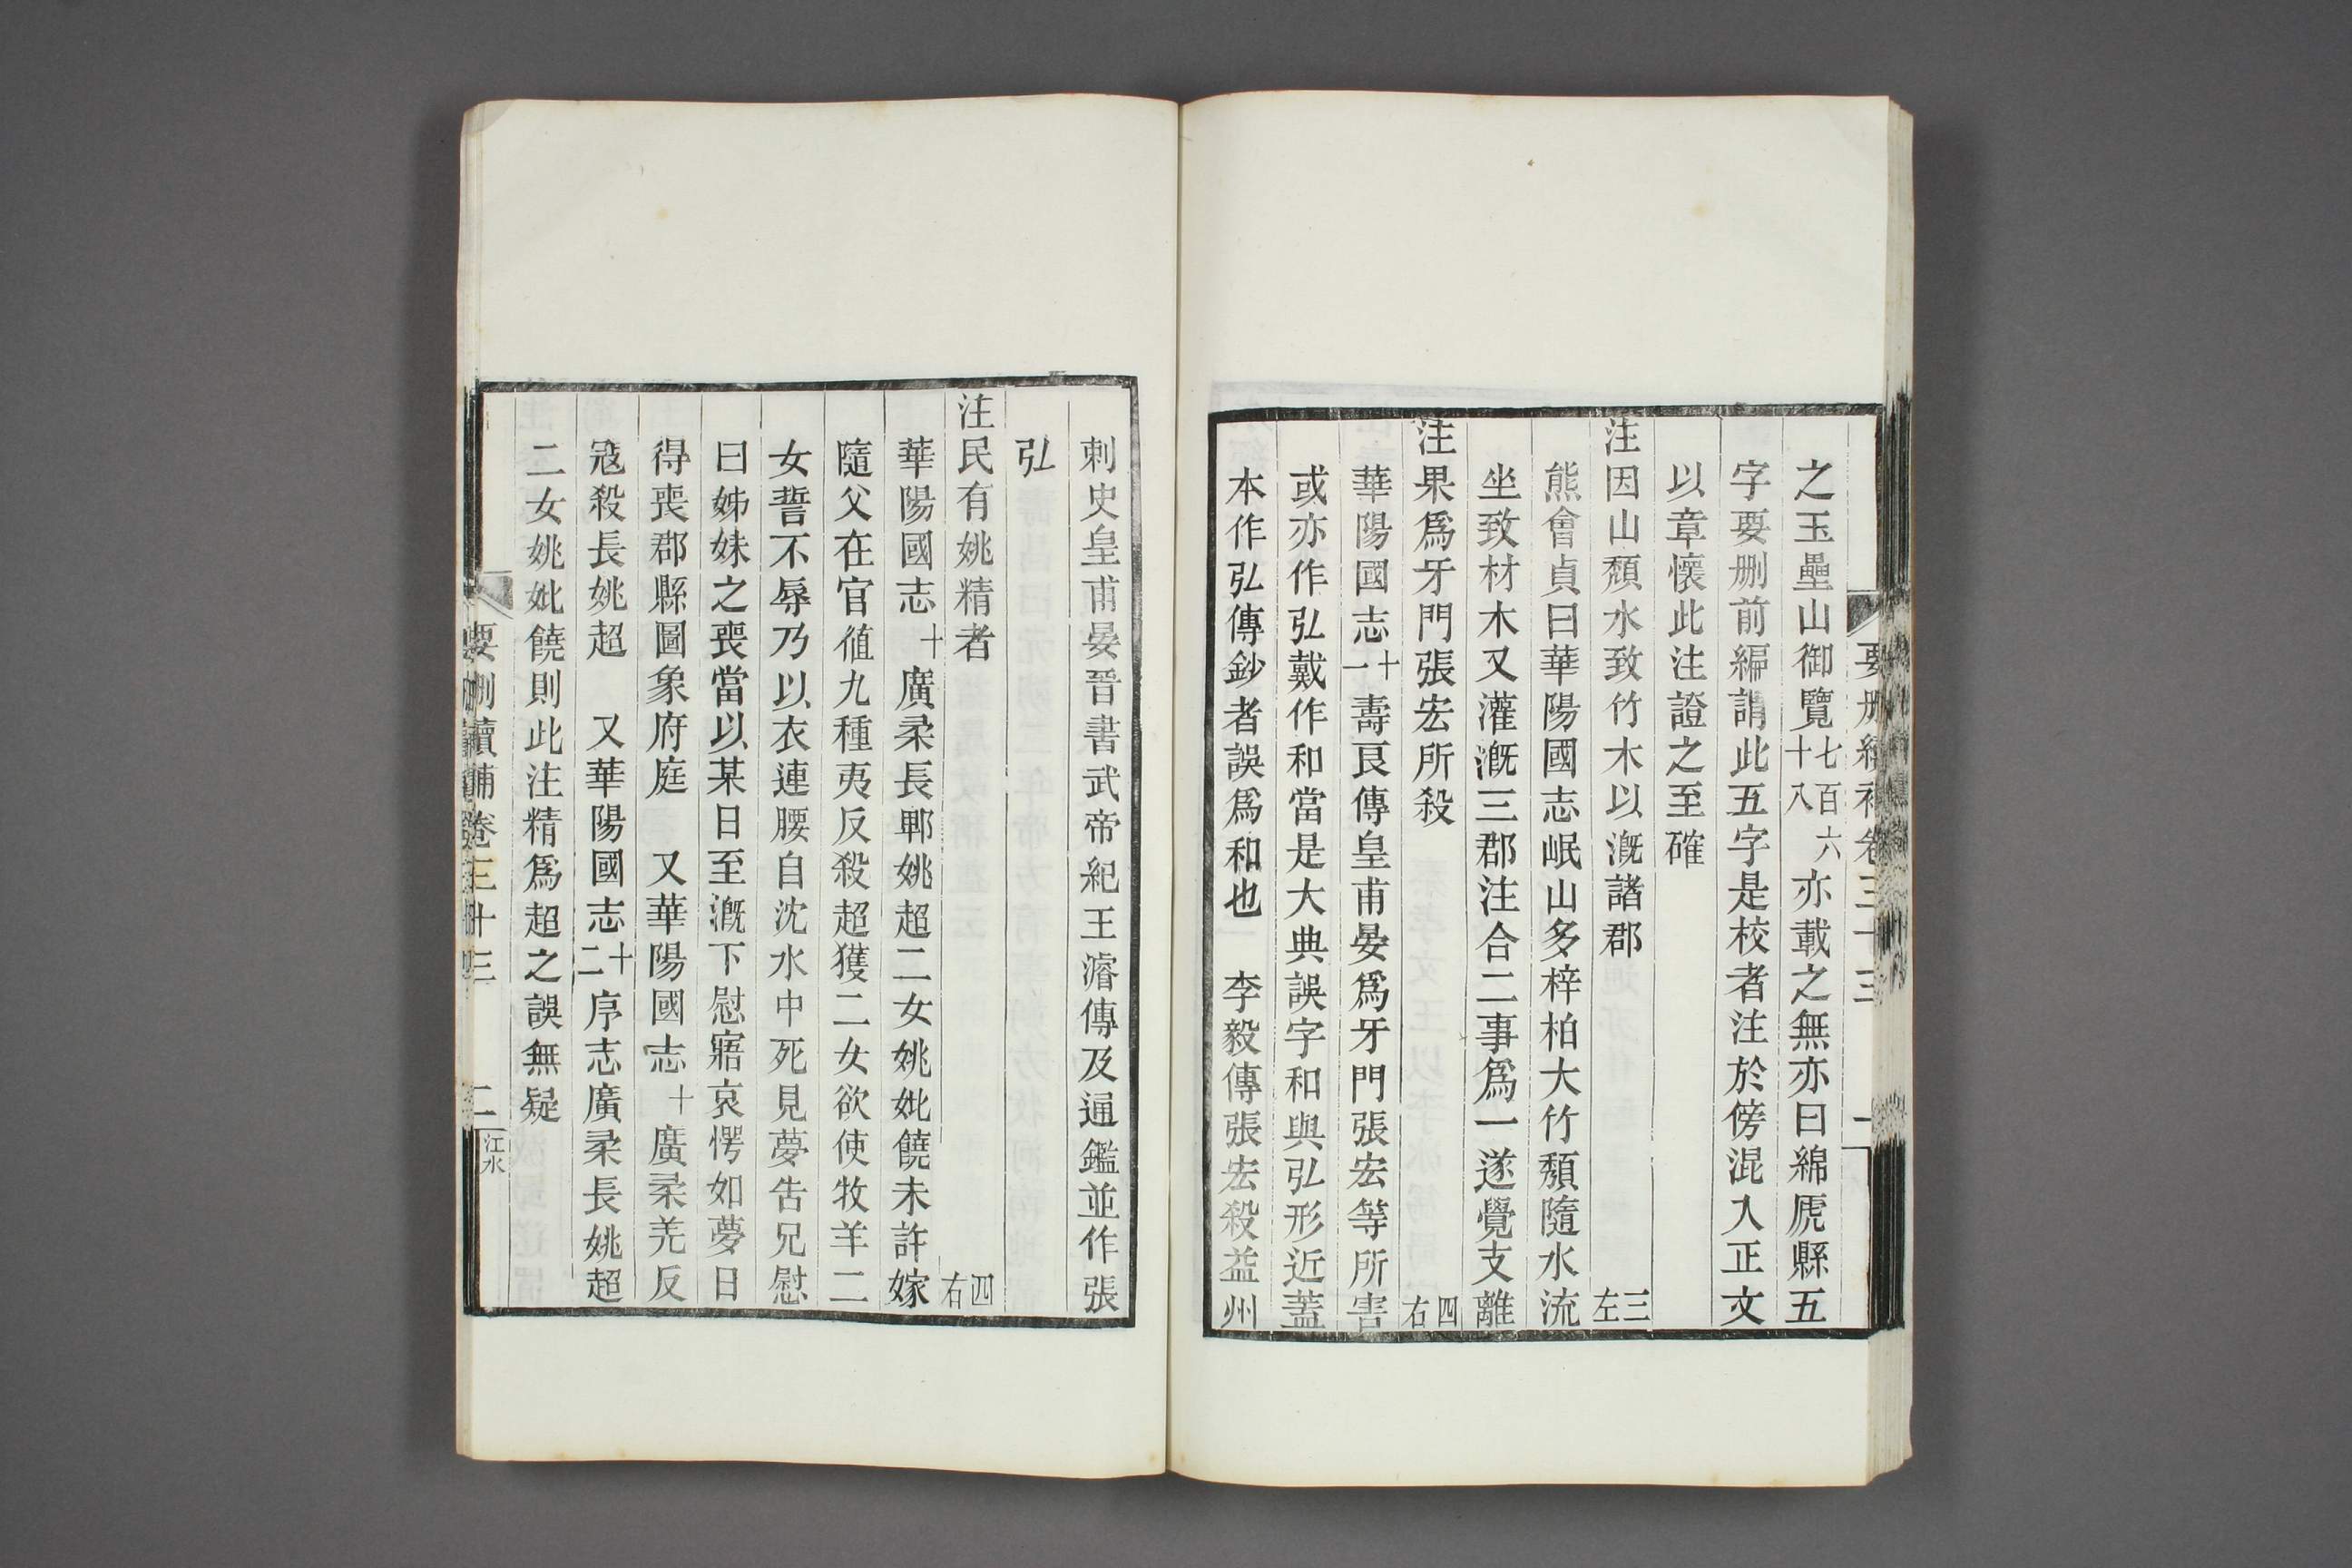 之玉壘山御覽七百六十八亦載之無亦曰綿虒縣五
字要刪前編謂此五字是校者注於傍混入正文
以章懷此注證之至確
注因山頹水致竹木以漑諸郡 三左
熊會貞曰華陽國志岷山多梓柏大竹頹隨水流
坐致材木又灌漑三郡注合二事爲一遂覺支離
注果爲牙門張宏所殺 四右
華陽國志十一壽良傳皇甫晏爲牙門張宏等所害
或亦作弘戴作和當是大典誤字和與弘形近蓋
本作弘傳鈔者誤爲和也 李毅傳張宏殺益州
刺史皇甫晏晉書武帝紀王濬傳及通鑑並作張
弘
注民有姚精者 四右
華陽國志十廣柔長郫姚超二女姚妣饒未許嫁
隨父在官値九種夷反殺超獲二女欲使牧羊二
女誓不辱乃以衣連腰自沈水中死見夢告兄慰
曰姊妹之喪當以某日至漑下慰寤哀愕如夢日
得喪郡縣圖象府庭 又華陽國志十廣柔羌反
寇殺長姚超 又華陽國志十二序志廣柔長姚超
二女姚妣饒則此注精爲超之誤無疑
要刪續補卷三十三 二 江水